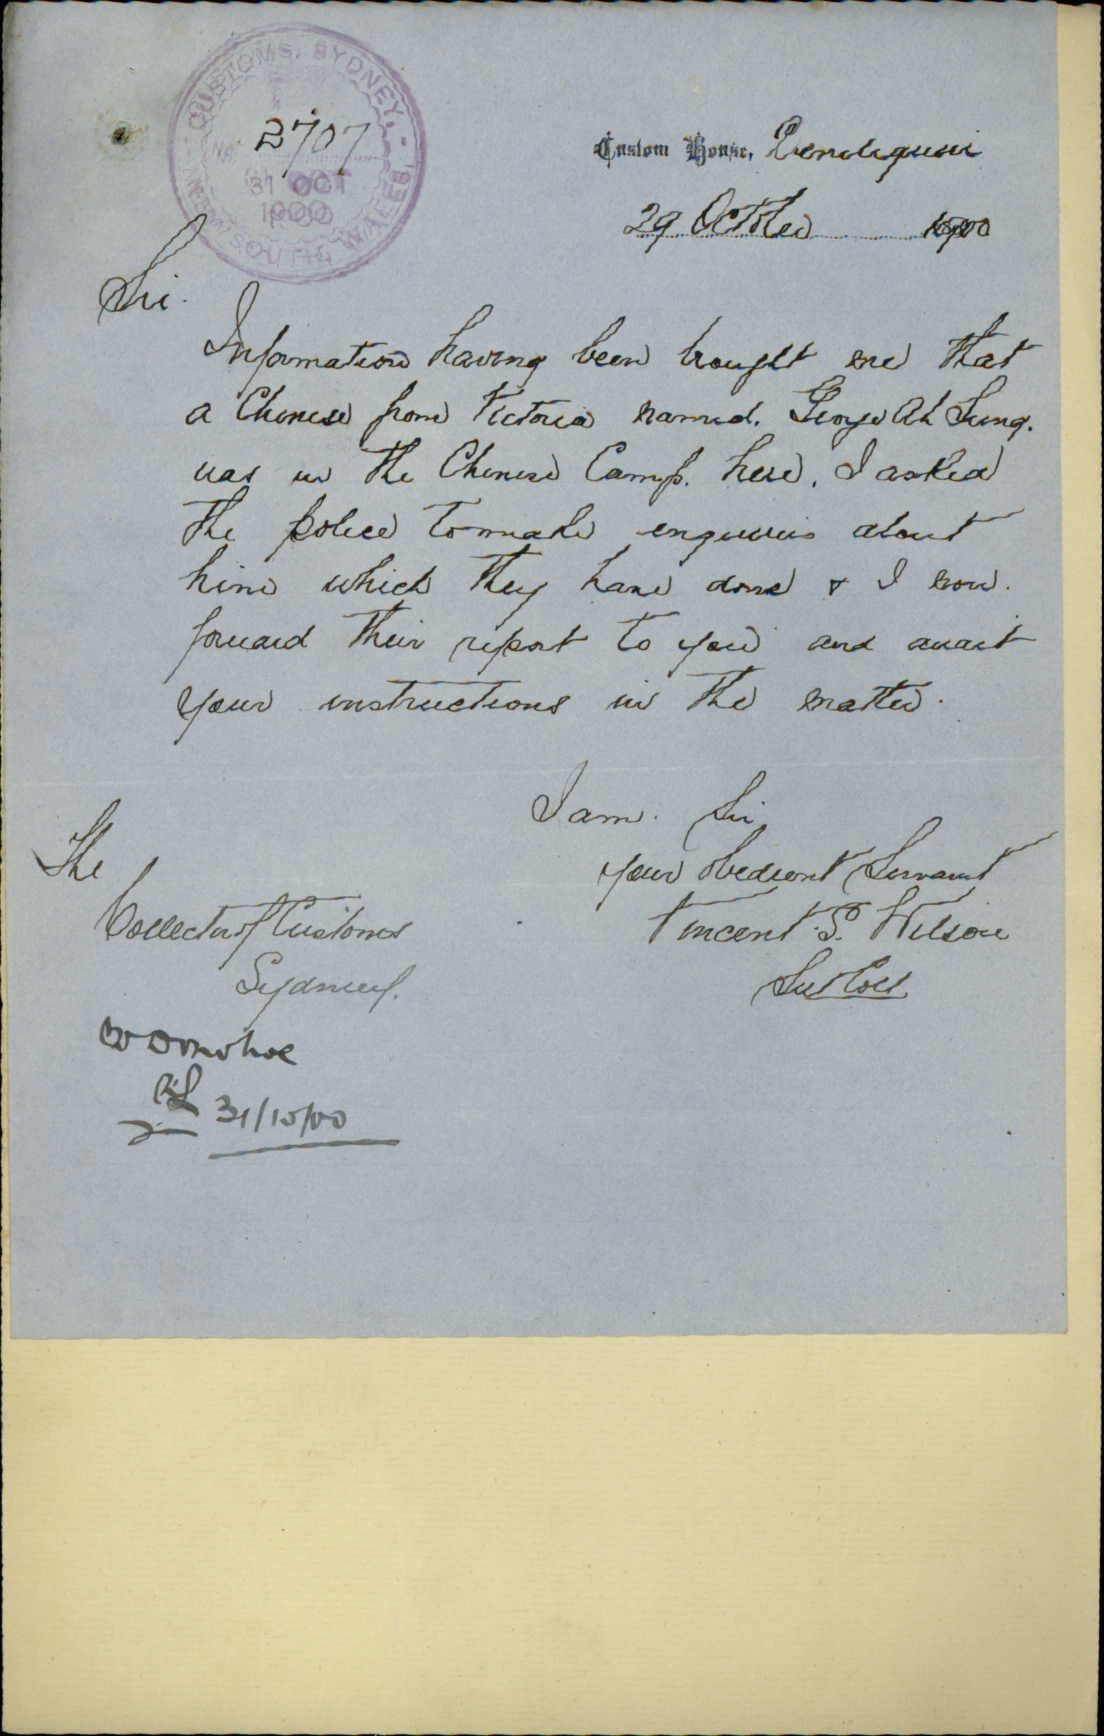 CUSTOMS, SYDNEY,
NEW SOUTH WALES
No. 2707
31 OCT
1900
Custom House, Deniliquin
29 October 1900
Sir.
Information having been brought me that
a Chinese from Victoria named. George Ah Sung.
was in the Chinese Camp. here. I asked
the police to make enquiries about
him which they have done & I now.
forward their report to you and await
your instructions in the matter.
I am. Sir
your obedient Servant
Vincent. S. Wilson
Sub Coll
The
Collector of Customs
Sydney.
Donohoe
31/10/00